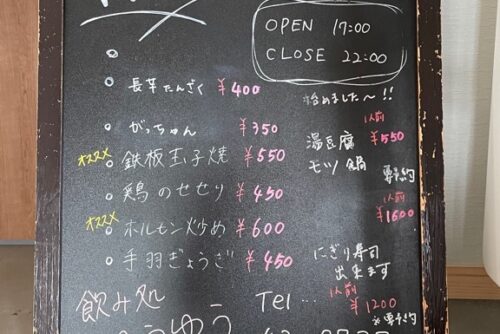 OPEN 17:00
CLOSE 22:00
長芋たんざく ¥400
がっちゃん ¥350
オススメ 鉄板玉子焼 ¥550
鶏のせせり ¥450
オススメ ホルモン炒め ¥600
手羽ぎょうざ ¥450
始めました〜!!
湯豆腐 1人前 ¥550
モツ鍋 要予約
1人前 ¥1600
にぎり寿司
出来ます
1人前 ¥1200
※要予約
飲み処
Tel…
ゆう